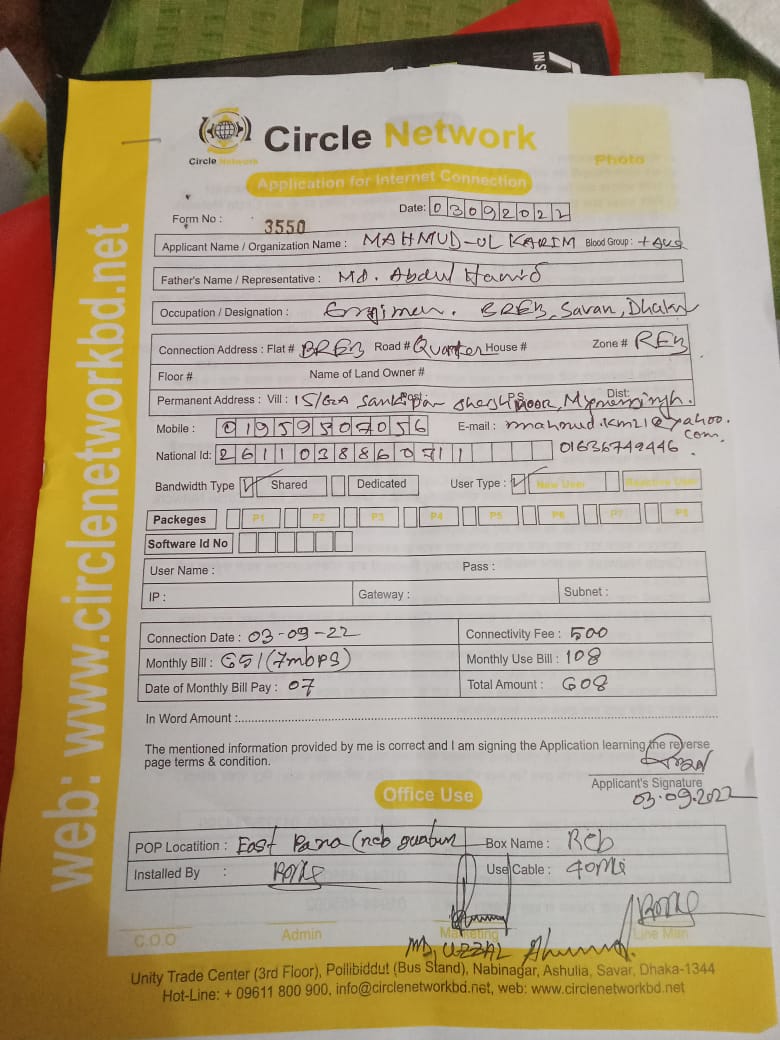 Circle Network
Circle Network
Photo
Application for Internet Connection
Date: 03092022
Form No : 3550
Applicant Name / Organization Name : MAHMUD-UL KARIM Blood Group:
Father's Name / Representative : Md. Abdul Hamid
Occupation / Designation : BREB, Savar, Dhaka
Connection Address : Flat # BREB Road # Quarter House # Zone # REB
Floor # Name of Land Owner #
Permanent Address : Vill : 15/62A Post PS Dist: Mymensingh.
Mobile : 01959507056 E-mail : mahmud.km21@yahoo.com.
National Id: 2611038860711 01636749446
Bandwidth Type Shared Dedicated User Type : New User Reactive User
Packeges P1 P2 P3 P4 P5 P6 P7 P8
Software Id No
User Name : Pass :
IP : Gateway : Subnet :
Connection Date : 03-09-22 Connectivity Fee : 500
Monthly Bill : 651(7mbps) Monthly Use Bill : 108
Date of Monthly Bill Pay : 07 Total Amount : 608
In Word Amount :
The mentioned information provided by me is correct and I am signing the Application learning the reverse
page terms & condition.
Applicant's Signature
03.09.2022
Office Use
POP Locatition : East Para (reb Box Name : Reb
Installed By : Use Cable : 40mi
C.O.O Admin Marketing Line Man
MD, UZZAL
Unity Trade Center (3rd Floor), Pollibiddut (Bus Stand), Nabinagar, Ashulia, Savar, Dhaka-1344
Hot-Line: + 09611 800 900, info@circlenetworkbd.net, web: www.circlenetworkbd.net
web: www.circlenetworkbd.net